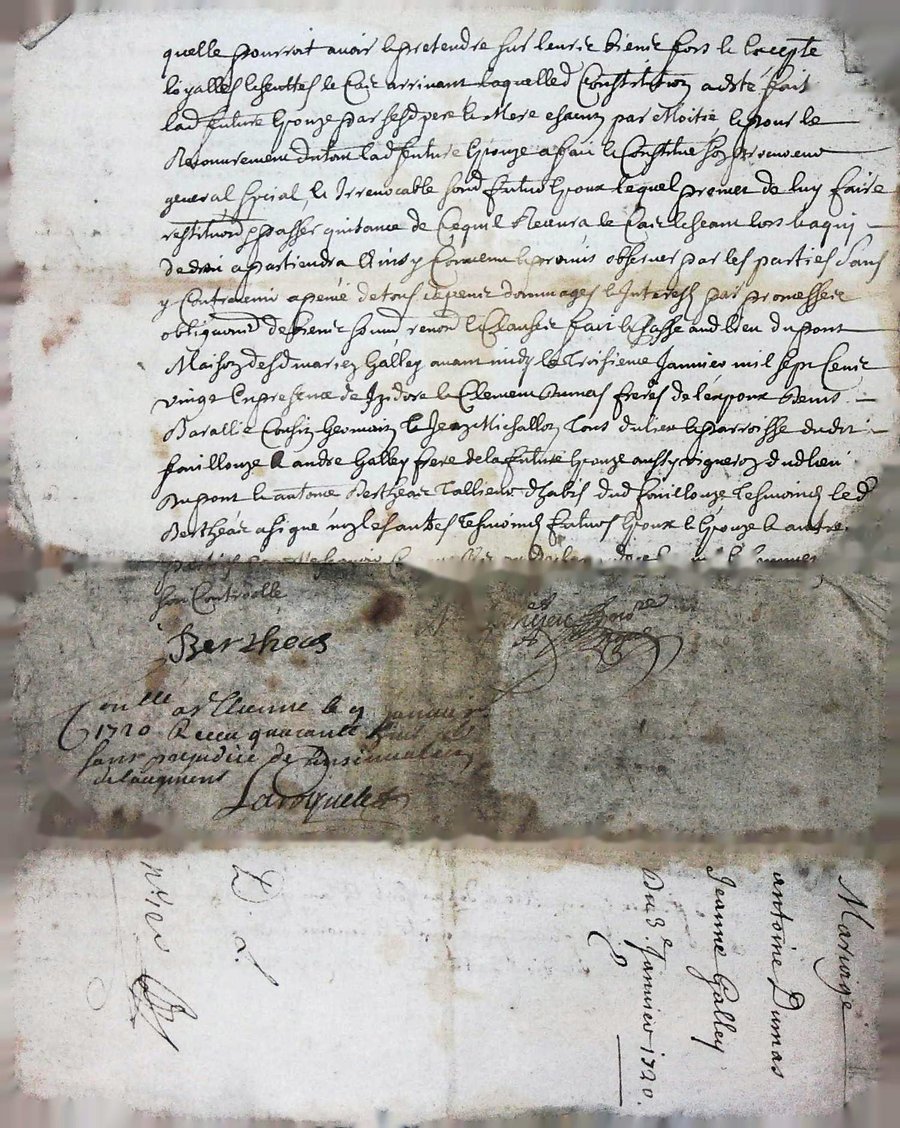 quelle pourroit avoir & pretendre sur leurs biens fors & Excepte
loyalles Escuittes le Cas arrivant laquelled Constitution a esté fait
lad future Epouze par sesd pere & Mere chacun par Moitie & pour le
Recouvrement du tout lad future Epouze a fait & Constitue son procureur
general special & Irrevocable sond futur Epoux lequel promet de luy faire
restitution & passer quitance de Cequil Recevra le Cas Escheant lors & a qui
de droit apartiendra Ainsy Convenu & promis observer par les parties Sans
y Contrevenir a peine de tous depens dommages & Interests par promesses
obligations de biens soumi renon & Clauses fait & passe aud lieu Dupont
Maison desd mariez Galley avant midy le Troisieme Janvier mil sept Cent
vingt En presence de Izidore & Clement Dumas freres de lespoux Denis
Barallie Cousin Germain & Jean Michallon Tous du lieu & parroisse dudit
fouillouze & andre Galley frere de la future Epouze aussy vigneron dud lieu
Dupont & antoine Bertheas Tallieur dhabis dud fouillouze Tesmoins led
Bertheas a signé non les autres Tesmoins futurs Epoux & Epouze & autres
son Controlle
Bertheas
Conlle a st Etienne le 9 Janvier
1720 Receu quarante huit sols
sans prejudice de linsinuation
de laugment
Laroquette
Mariage
antoine Dumas
Jeanne Galley
Du 3.e Janvier 1720.